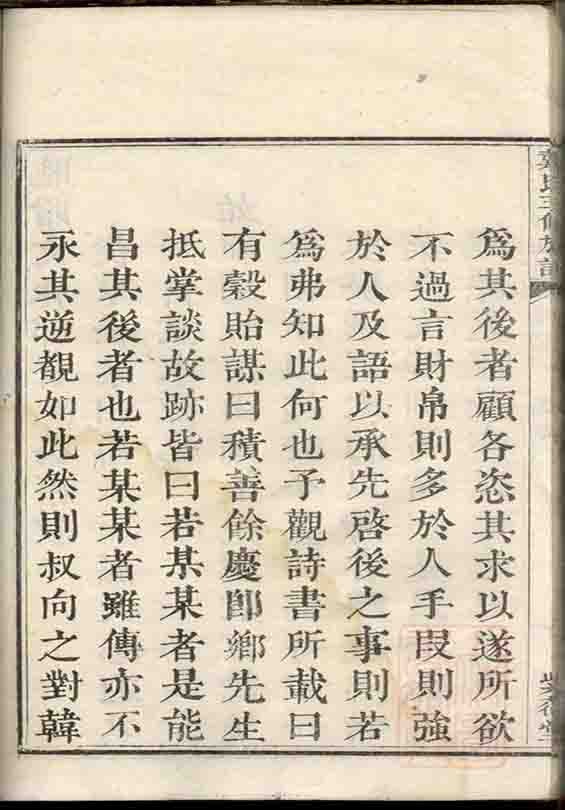 爲其後者顧各恣其求以遂所欲
不過言財帛則多於人手叚則強
於人及語以承先啓後之事則若
爲弗知此何也予觀詩書所載曰
有穀貽謀曰積善餘慶卽鄉先生
抵掌談故跡皆曰若某某者是能
昌其後者也若某某者雖傳亦不
永其逆覩如此然則叔向之對韓